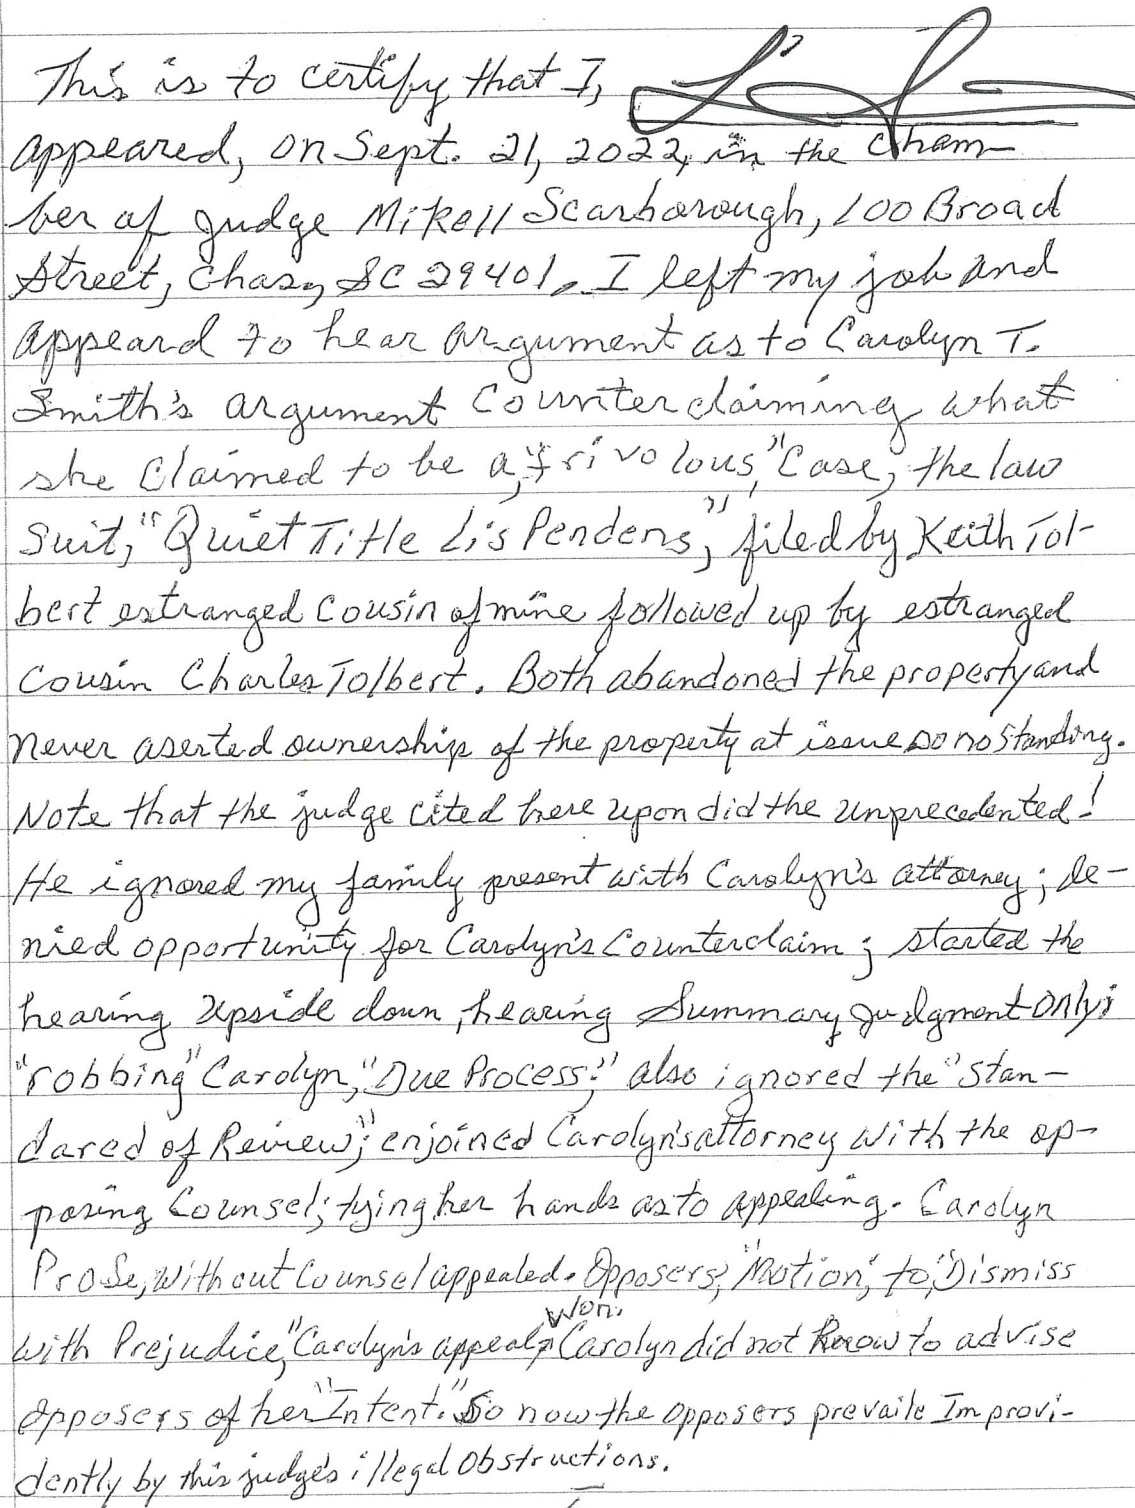 This is to certify that I,
appeared, on Sept. 21, 2022, in the Cham-
ber of Judge Mikell Scarborough, 100 Broad
Street, Chas, SC 29401. I left my job and
appeard to hear argument as to Carolyn T.
Smith's argument Counterclaiming what
she Claimed to be a, "frivolous," Case, the law
Suit, "Quiet Title Lis Pendens," filed by Keith Tol-
bert estranged Cousin of mine followed up by estranged
Cousin Charles Tolbert. Both abandoned the property and
never aserted ownership of the property at issue so no standing.
Note that the judge cited here upon did the unprecedented!
He ignored my family present with Carolyn's attorney; de-
nied opportunity for Carolyn's Counterclaim; started the
hearing upside down, hearing Summary Judgment only;
"robbing" Carolyn, "Due Process;" also ignored the "Stan-
dared of Review"; enjoined Carolyn's attorney with the op-
posing Counsel; tying her hands as to appealing. Carolyn
ProSe, without Counsel appealed. Opposers, "Motion," to, "Dismiss
with Prejudice," Carolyn's appeal, Won. Carolyn did not know to advise
opposers of her "Intent." So now the opposers prevaile Improvi-
dently by this judge's illegal obstructions.